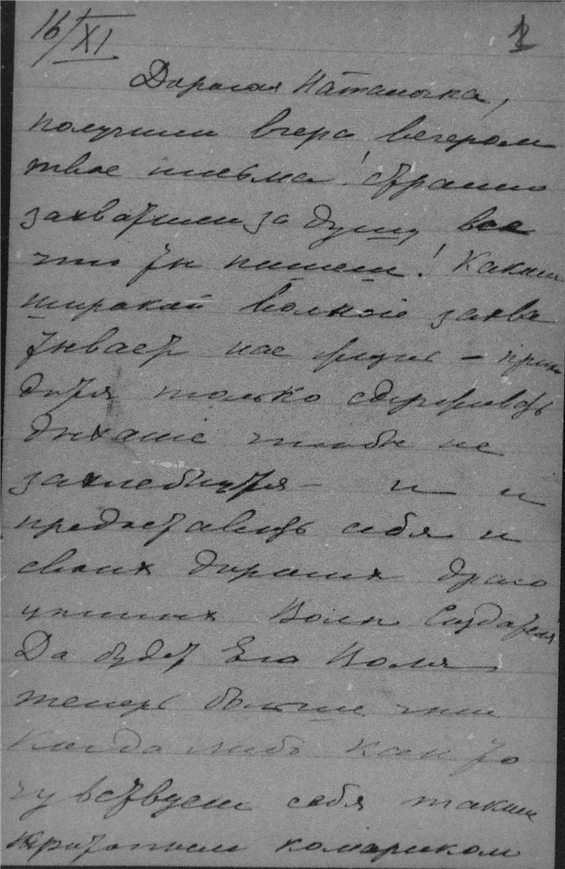 16/XI 1
Дорогая Наташочка,
получили вчера вечером
твое письма! Страшно
захватили за душу все
что ты пишешь! Какой
широкой волной захва
тывает нас жизнь – прихо
дится только сдерживать
дыханіе чтобы не
захлебнутся – и и
предоставить себя и
своих дорогих драго
ценных Воли Создателя
Да будет Его Воля
теперь больше чем
когда либо как то
чувствуешь себя таким
комариком